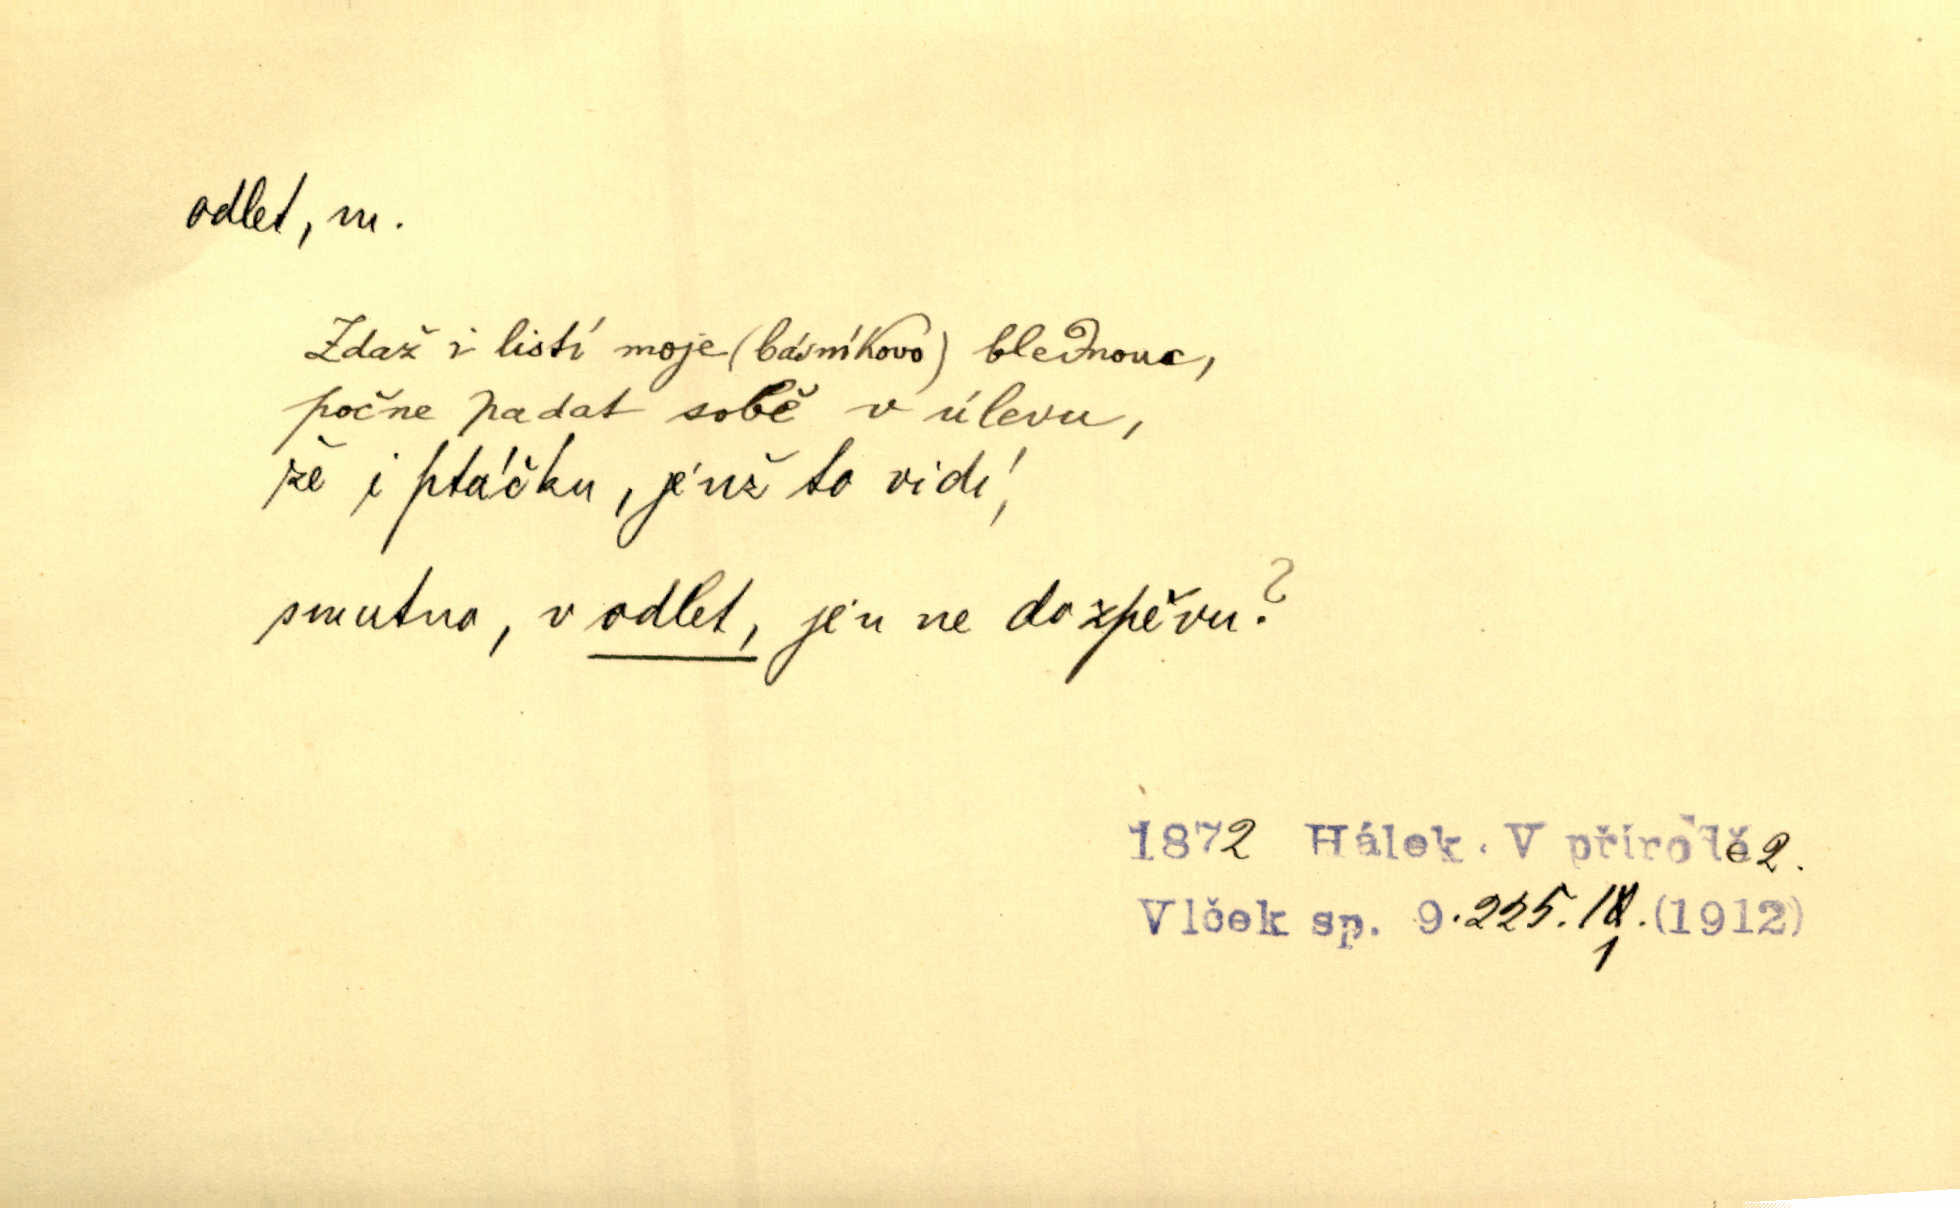 odlet, m.
Zdaž i listí moje (básníkovo) blednouc,
počne padat sobě v úlevu,
že i ptáčku, jenž to vidí,
smutno, v odlet, jen ne do zpěvu?
1872 Hálek. V přírodě 2.
Vlček sp. 9. 225. (1912)